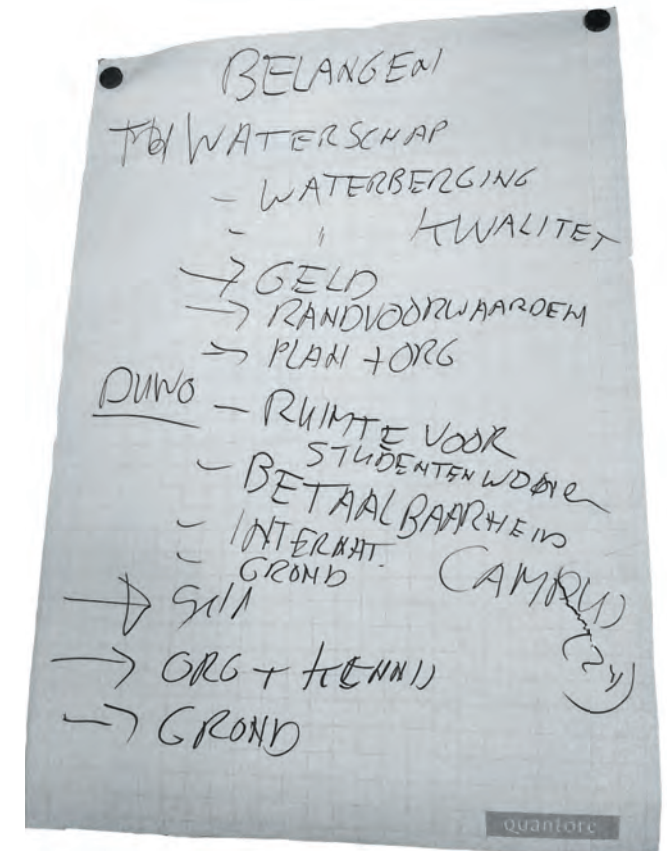 BELANGEN
WATERSCHAP
- WATERBERGING
- " KWALITET
→ GELD
→ RANDVOORWAARDEN
→ PLAN + ORG
DUWO - RUIMTE VOOR
STUDENTEN
- BETAALBAARHEID
- INTERNAT. CAMPUS
- GROND
→
→ ORG + KENNIS
→ GROND
quantore